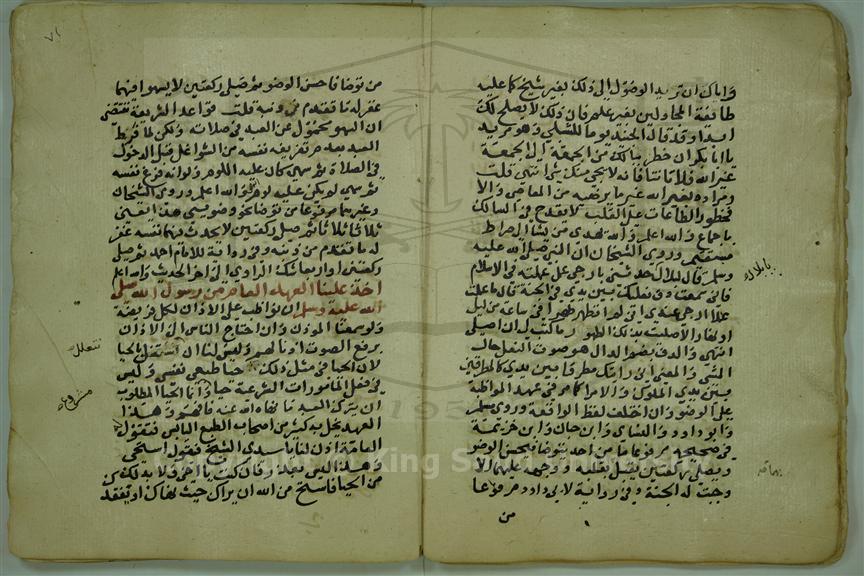 واياك ان تريد الوصول الى ذلك بغير شيخ كما عليه
طائفة المجادلين بغير علم فان ذلك لا يصلح لك
ابدا وقد قال الجنيد يوما للشبلي وهو مريد
يا ابا بكر ان خطر ببالك من الجمعة الى الجمعة
غير الله فلا تاتنا فانه لا يجي منك شي انتهى قلت
ومراده بغير الله غير ما يرضيه من المعاصي والا
فخطور الطاعات على القلب لا يقدح في السالك
باجماع والله اعلم والله يهدي من يشا الى صراط
مستقيم وروى الشيخان ان النبي صلى الله عليه
وسلم قال لبلال حدثني بارجى عمل عملته في الاسلام
فاني سمعت دف نعليك بين يدي في الجنة قال ما عملت
عملا ارجى عندي اني لم اتطهر طهورا في ساعة من ليل
او نهار الا صليت بذلك الطهور ما كتب لي ان اصلي
انتهى والدف بضم الدال هو صوت النعل حال
المشي والمعنى اني رايتك مطرقا بين يدي كالمطرقين
بين يدي الملوك والامرا كما مر في عهد المواظبة
على الوضوء وان اختلف لفظ الواقعة وروى مسلم
وابو داود والنسائي وابن ماجه وابن خزيمة
في صحيحه مرفوعا ما من احد يتوضا فيحسن الوضو
ويصلي ركعتين يقبل بقلبه ووجهه عليهما الا
وجبت له الجنة وفي رواية لابي داود مرفوعا
من
يا بلال
٧١
من توضا فاحسن الوضو ثم صلى ركعتين لا يسهو فيهما
غفر له ما تقدم من ذنبه قلت قواعد الشريعة تقتضي
ان السهو محمول عن العبد في صلاته ولكن لما فرط
العبد بعدم تفريغه نفسه من الشواغل قبل الدخول
في الصلاة ثم سهى كان عليه اللوم ولو انه فرغ نفسه
ثم سهى لم يكن عليه لوم والله اعلم وروى الشيخان
وغيرهما مرفوعا من توضا نحو وضوءي هذا يعني
ثلاثا ثلاثا ثم صلى ركعتين لا يحدث فيهما نفسه غفر
له ما تقدم من ذنبه وفي رواية للامام احمد ثم صلى
ركعتين او اربعا شك الراوي الى اخر الحديث والله اعلم
اخذ علينا العهد العام من رسول الله صلى
الله عليه وسلم ان نواظب على الاذان لكل فريضة
ولو سمعنا المؤذن وان احتاج الناس الى الاذان
برفع الصوت اذنا لهم وليس لنا ان نتعلل بالحيا
لان الحيا في مثل ذلك حيا طبعي نفسي وليس
في فعل المامورات الشرعية حيا وانما الحيا المطلوب
ان يترك العبد ما نهاه الله عنه فافهم وهذا
العهد يخل به كثير من اصحاب الطبع اليابس فتقول
العامة اذن لنا يا سيدي الشيخ فيقول استحي
وهذا ليس بعذر وقد كنت يا اخي ولا بد لك من
من الحيا فاستح من الله ان يراك حيث نهاك او يفقدك
نتعلل